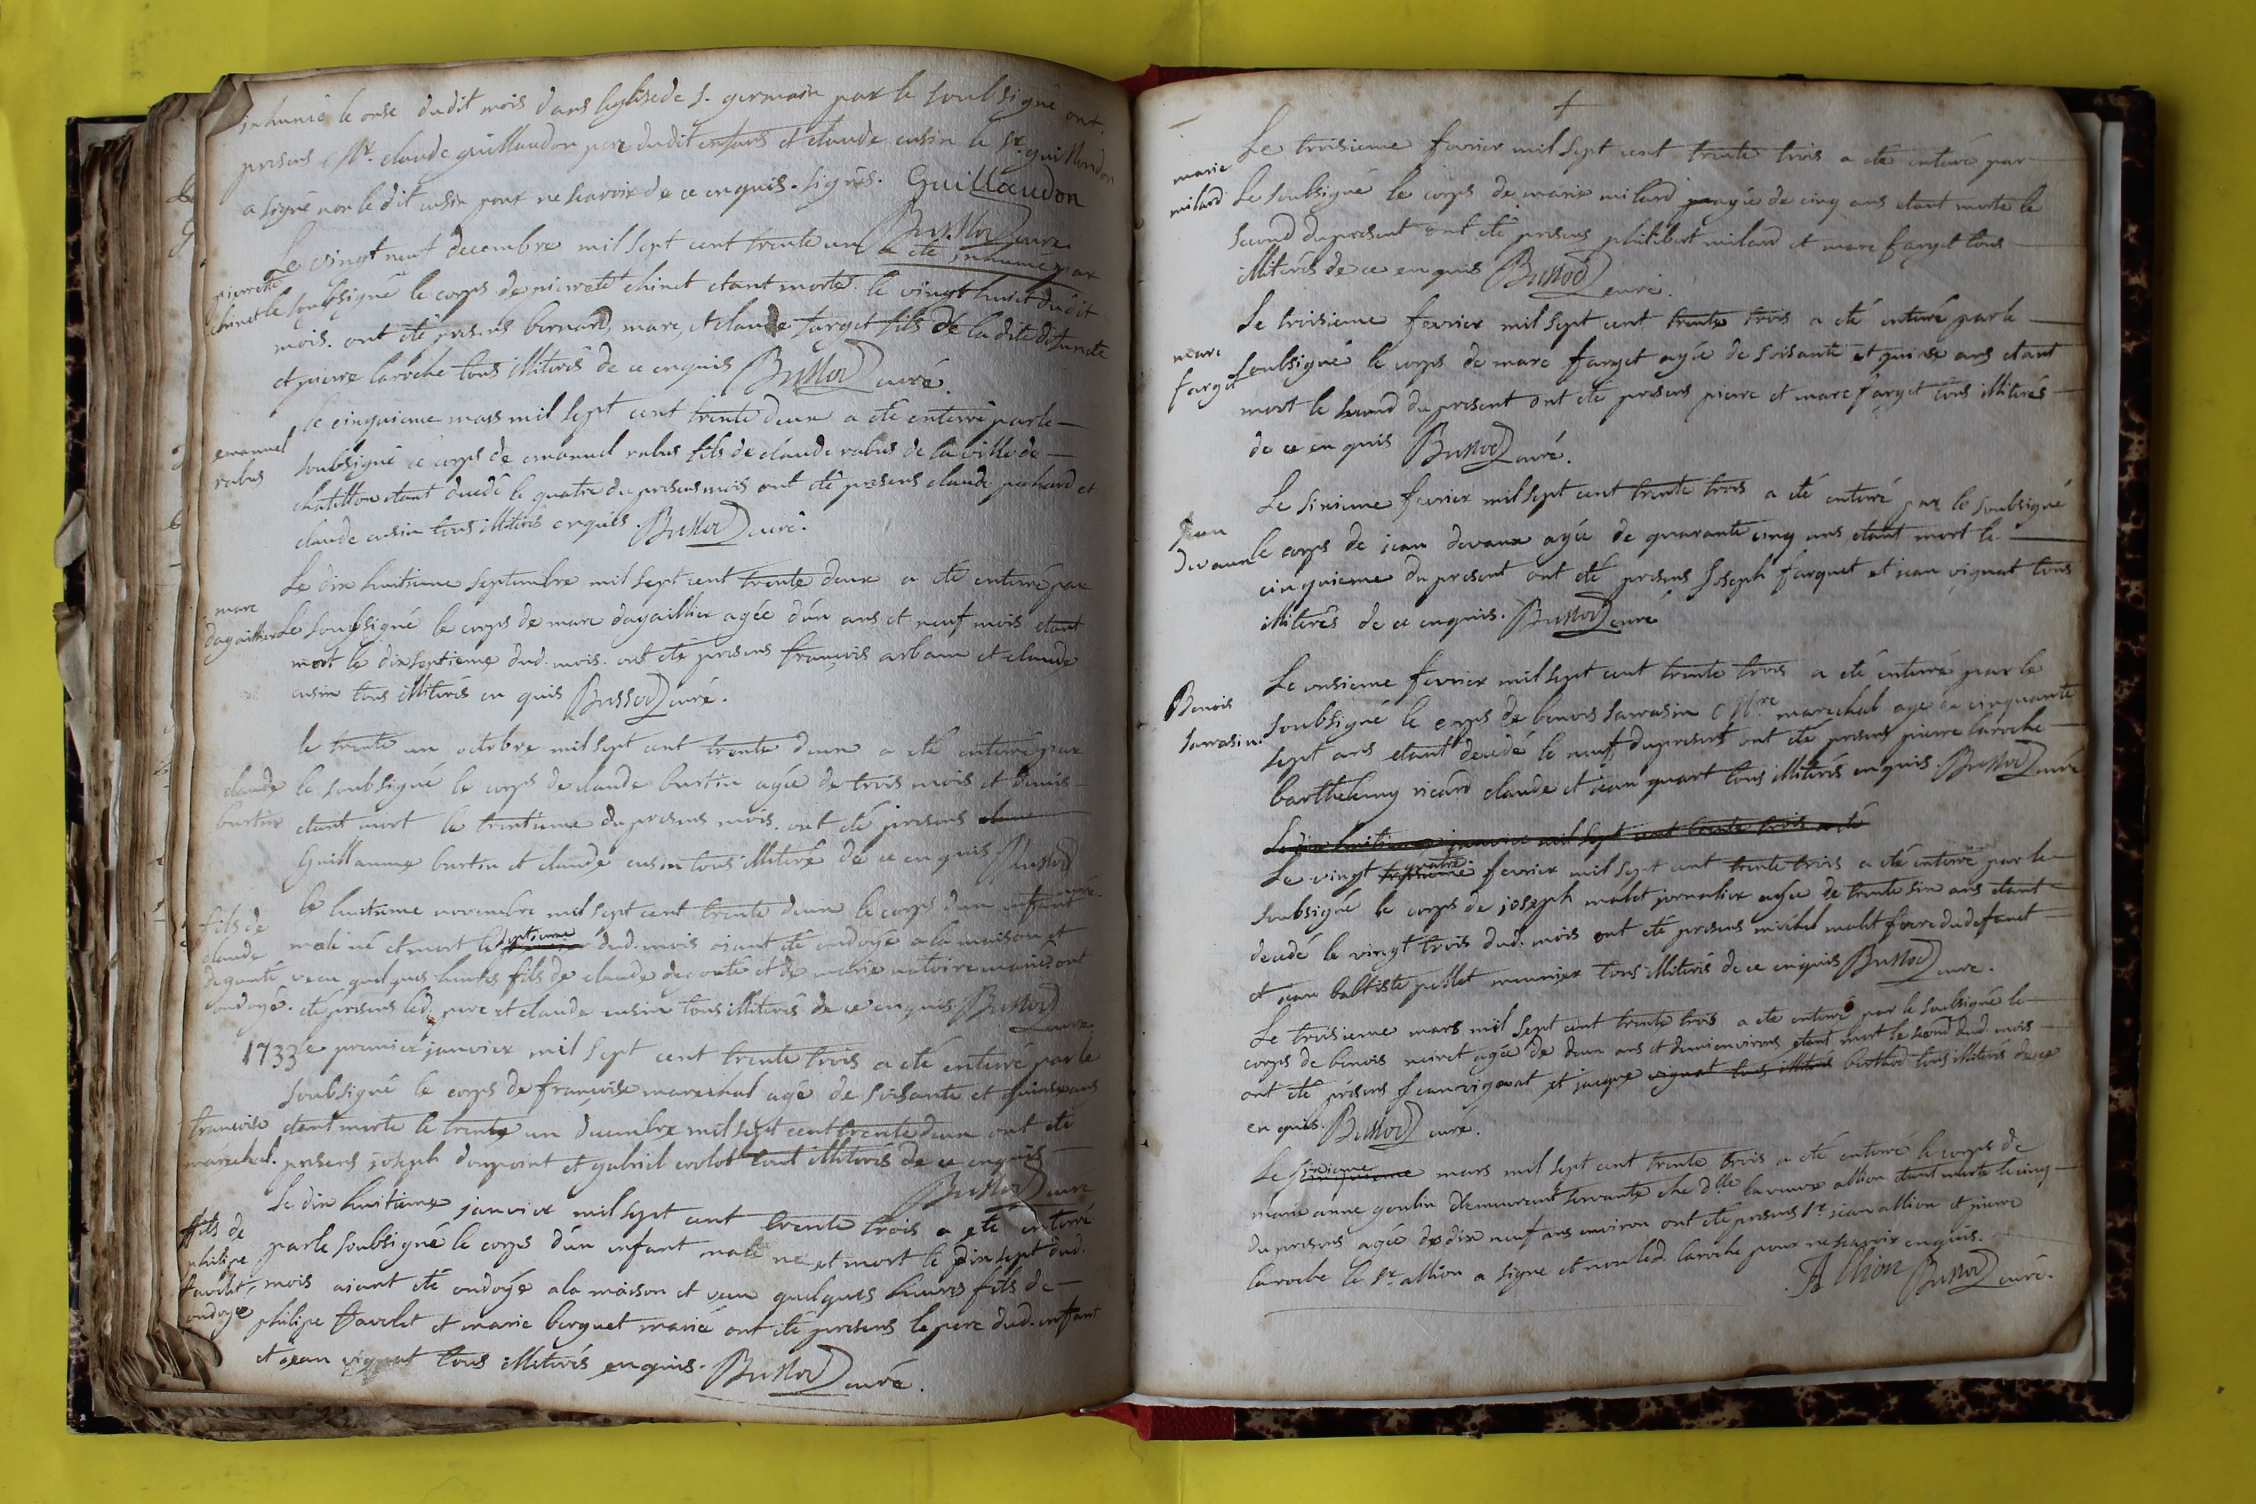 inhumé le onse dudit mois dans leglise de s. germain par le soubsigné ont
presens Mr. claude guillaudon pere dudit enfans et claude cusin le sr. guillaudon
a signé non le dit cusin pour ne scavoir de ce enquis. signés. Guillaudon
Bussod curé
Le vingt neuf decembre mil sept cent trente un a eté inhumé par
pierrette
chinet
le soubsigné le corps de pierrete chinet etant morte le vingt huict dudit
mois. ont eté presens bernard, marc, et claude farget fils de la dite defuncte
et pierre laroche tous illiterés de ce enquis Bussod curé.
le cinquieme mars mil sept cent trente deux a eté enterré par le
emanuel
rabus
soubsigné le corps de emanuel rabus fils de claude rabus de la ville de
chatillon etant decedé le quatre du presens mois ont eté presens claude et
claude cusin tous illiterés enquis. Bussod curé.
Le dix huitieme septembre mil sept cent trente deux a eté enterré par
marc
dagaillier
Le soubsigné le corps de marc dagaillier agée d'un ans et neuf mois etant
mort le dix septieme dud. mois. ont eté presens françois arbain et claude
cusin tous illiterés enquis Bussod curé.
le trente un octobre mil sept cent trente deux a eté enterré par
claude
burtin
le soubsigné le corps de claude burtin agée de trois mois et demis
etant mort le trentieme du presens mois. ont eté presens
Guillaume burtin et claude cusin tous illiteré de ce enquis Bussod
curé.
le huitieme novembre mil sept cent trente deux le corps d'un enfant
fils de
claude
degouté
ondoyé.
male né et mort le septieme dud. mois aiant eté ondoyé a la maison et
vecu quelques heures fils de claude degouté et de marie mariés ont
eté presens led. pere et claude cusin tous illiterés de ce enquis Bussod
curé
1733 Le premier janvier mil sept cent trente trois a eté enterré par le
soubsigné le corps de françoise marechal agé de soisante et quinse ans
francoise
maréchal.
etant morte le trente un decembre mil sept cent trente deux ont eté
presens joseph donpoint et gabriel tout illiterés de ce enquis
Bussod curé
Le dix huitieme janvier mil sept cent trente trois a eté enterré
fils de
philipe
favelet,
ondoyé
par le soubsigné le corps d'un enfant male né et mort le dix sept dud.
mois aiant eté ondoyé a la maison et vecu quelques heures fils de
philipe favelet et marie berguet mariés ont eté presens le pere dud. enfant
et jean vignat tous illiterés enquis. Bussod curé.
Le troisieme fevrier mil sept cent trente trois a eté enterré par
marie
milard
Le soubsigné le corps de marie milard agée de cinq ans etant morte le
second du present ont eté presens philibert milard et marc farget tous
illiterés de ce enquis Bussod curé.
Le troisieme fevrier mil sept cent trente trois a eté enterré par le
marc
farget
soubsigné le corps de marc farget agée de soisante et quinse ans etant
mort le second du present ont eté presens pierre et marc farget tous illiterés
de ce enquis Bussod curé.
Le sixieme fevrier mil sept cent trente trois a eté enterré par le soubsigné
jean
devaux
le corps de jean devaux agée de quarante cinq ans etant mort le
cinquieme du present ont eté presens Joseph farguet et jean vignat tous
illiterés de ce enquis. Bussod curé
Le onsieme fevrier mil sept cent trente trois a eté enterré par le
Benois
sarrasin
soubsigné le corps de benois sarrasin Mre. marechal agé de cinquante
sept ans etant decedé le neuf du presens ont eté presens pierre laroche
barthelemy ricard claude et jean quart tous illiterés enquis. Bussod curé
Le dix huitieme janvier mil sept cent trente trois a eté
Le vingt quatre fevrier mil sept cent trente trois a eté enterré par le
soubsigné le corps de joseph malet jornalier agée de trente six ans etant
decedé le vingt trois dud. mois ont eté presens michel malet frere du defunct
et jean baltiste pusset meunier tous illiterés de ce enquis Bussod curé.
Le troisieme mars mil sept cent trente trois a eté enterré par le soubsigné le
corps de benois neiret agée de deux ans et demi environs etant mort le second dud. mois
ont eté présens jean vignat et jacque vignat tous illiterés berthod tous illiterés de ce
enquis. Bussod curé.
Le sixieme mars mil sept cent trente trois a eté enterré le corps de
marie anne goulin demeurent servante ché dlle la veuve allion etant morte le cinq
du presens agée de dix neuf ans environ ont eté presens sr. jean allion et pierre
laroche le sr. allion a signé et non led. laroche pour ne scavoir enquis.
Allion Bussod curé.